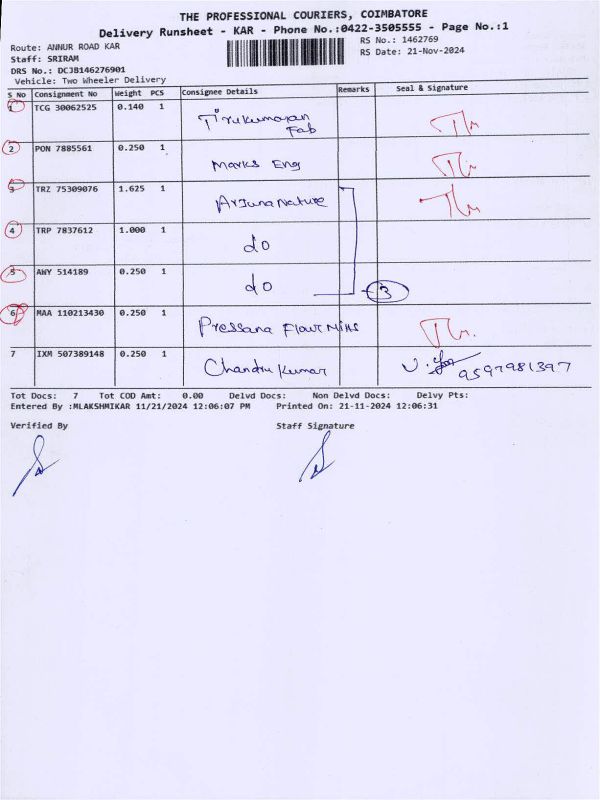 THE PROFESSIONAL COURIERS, COIMBATORE
Delivery Runsheet - KAR - Phone No.:0422-3505555 - Page No.:1
Route: ANNUR ROAD KAR
RS No.: 1462769
Staff: SRIRAM
RS Date: 21-Nov-2024
DRS No.: DCJB146276901
Vehicle: Two Wheeler Delivery
S No Consignment No Weight PCS Consignee Details Remarks Seal & Signature
1 TCG 30062525 0.140 1 Tirukumaran
Fab
2 PON 7885561 0.250 1 Marks Eng
3 TRZ 75309076 1.625 1 Arjuna Nature
4 TRP 7837612 1.000 1 do
5 AWY 514189 0.250 1 do 3
6 MAA 110213430 0.250 1 Pressana Flour Mills
7 IXM 507389148 0.250 1 Chandru Kumar 9597981397
Tot Docs: 7 Tot COD Amt: 0.00 Delvd Docs: Non Delvd Docs: Delvy Pts:
Entered By :MLAKSHMIKAR 11/21/2024 12:06:07 PM Printed On: 21-11-2024 12:06:31
Verified By Staff Signature